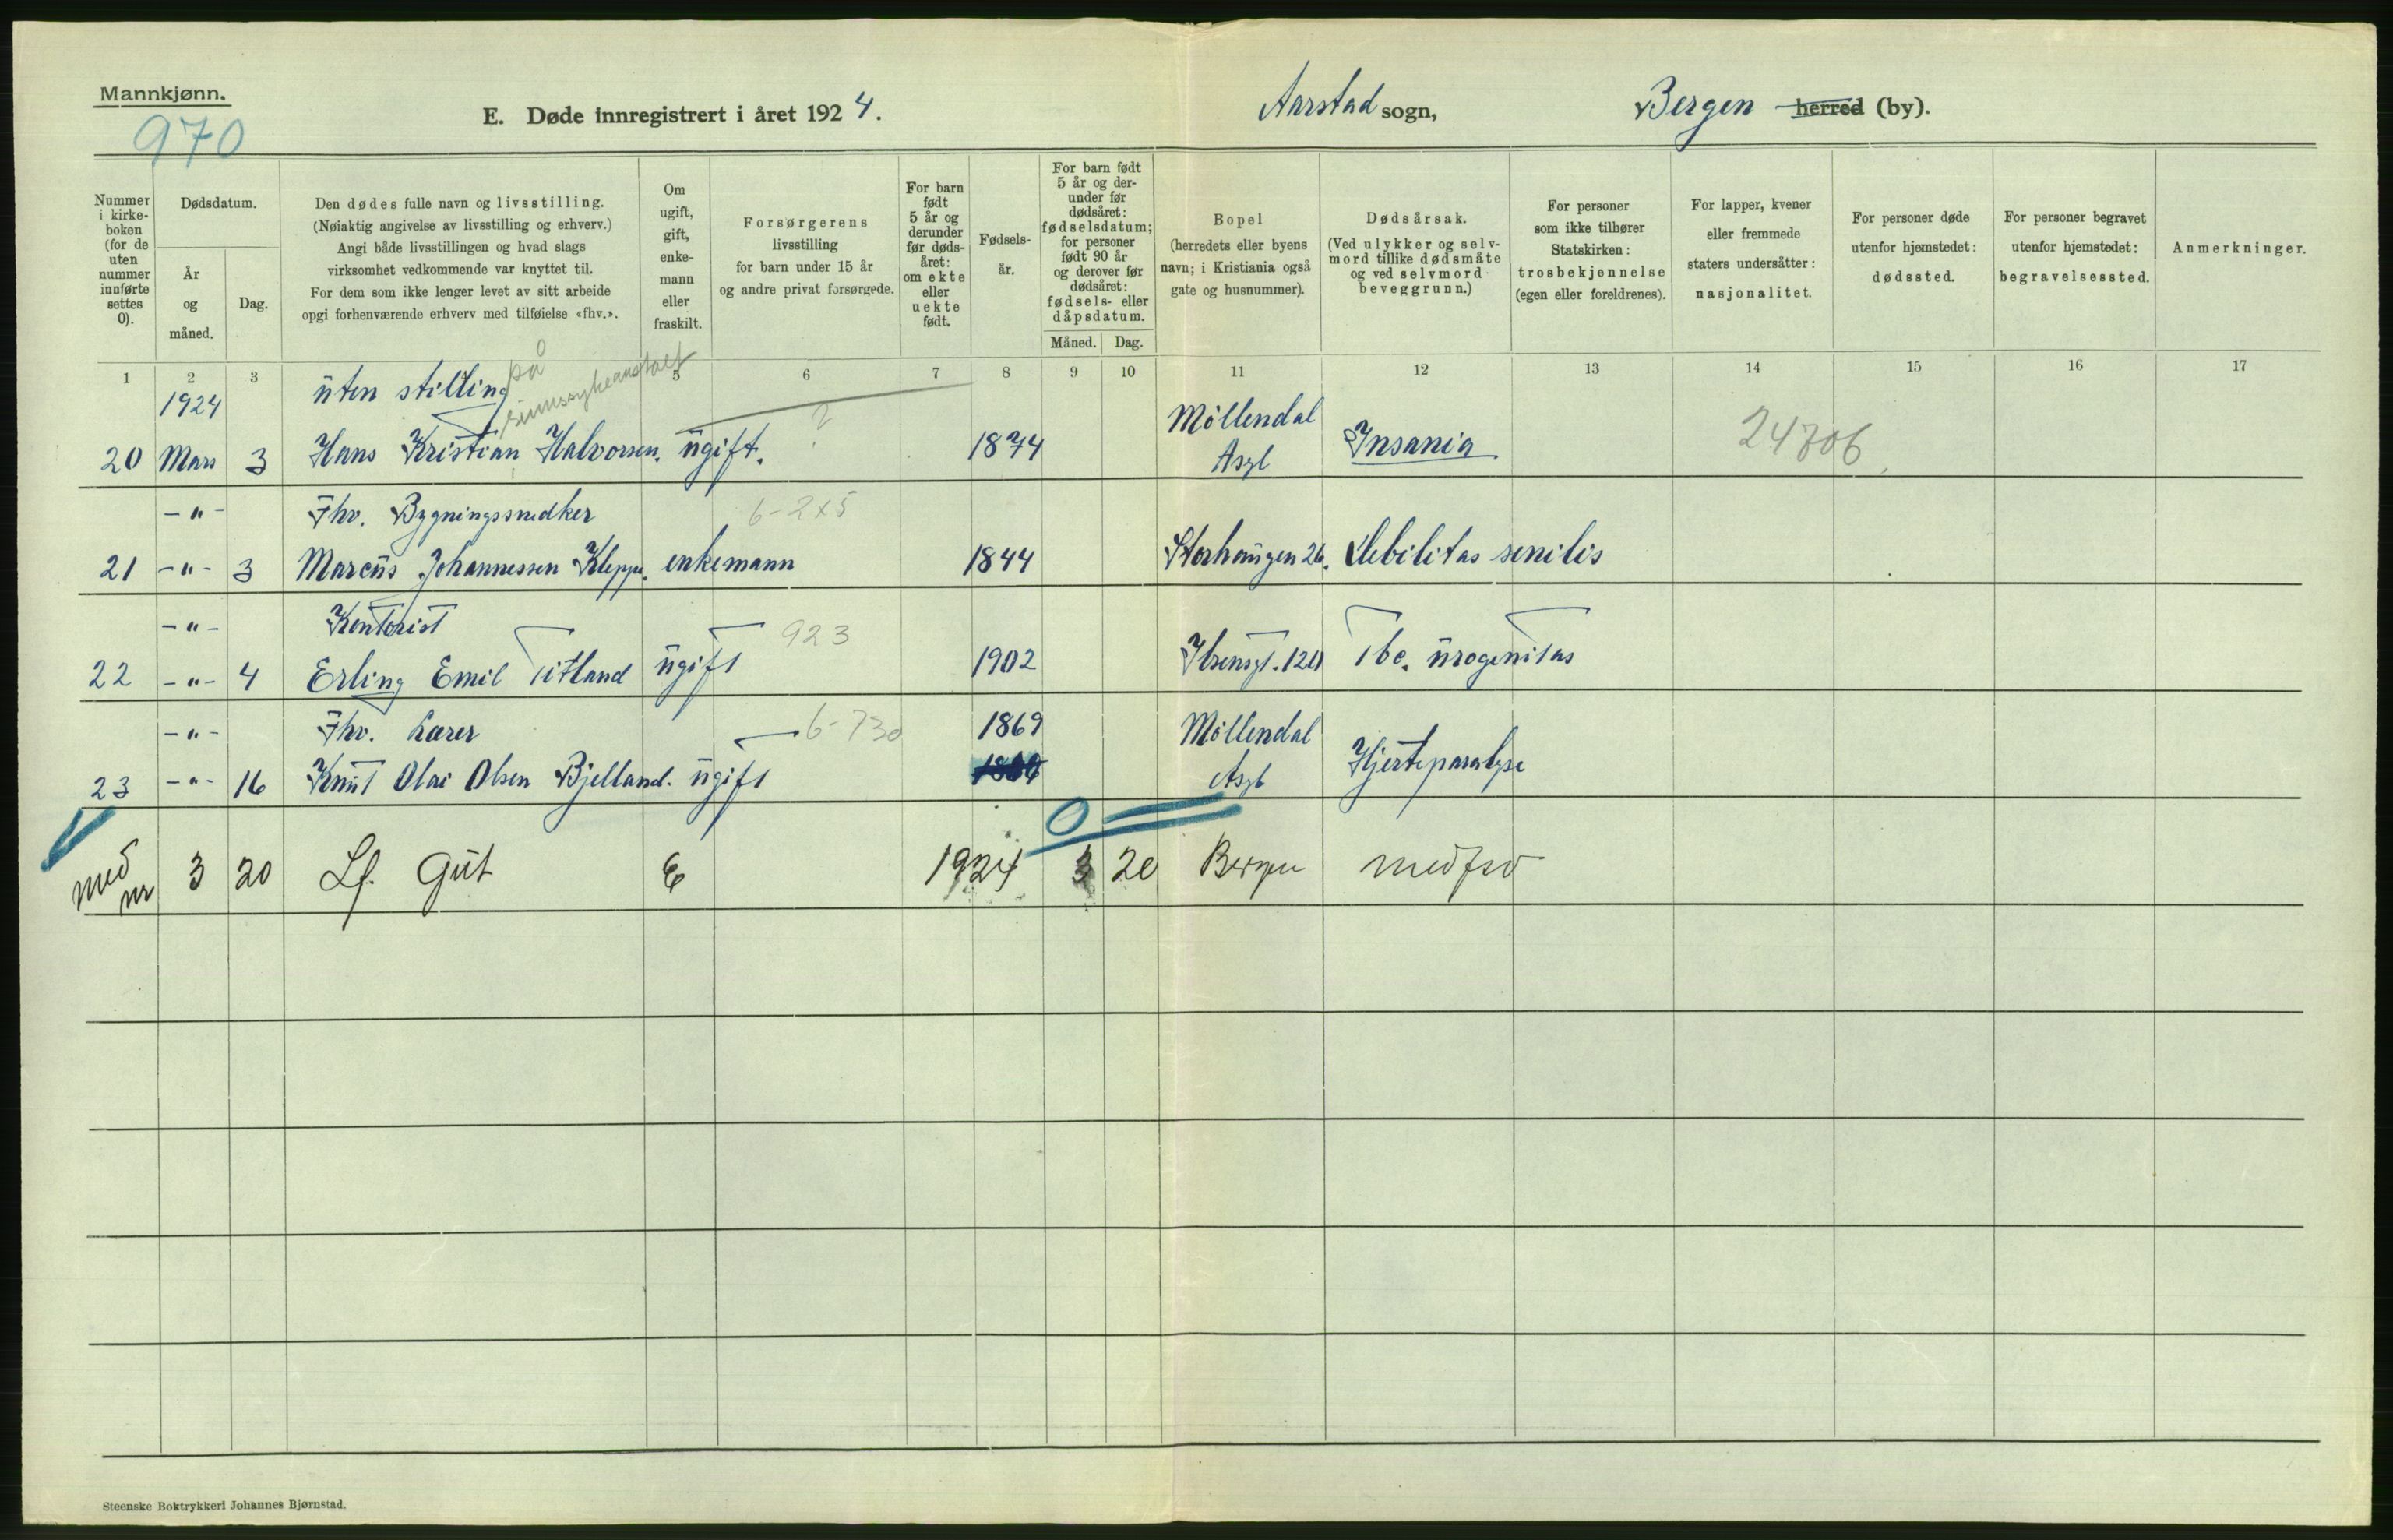 Mannkjønn.
970
E. Døde innregistrert i året 1924.
Aarstad sogn,
Bergen herred (by).
Nummer i kirke- boken (for de uten nummer innførte settes 0).
Dødsdatum.
År og måned.
Dag.
Den dødes fulle navn og livsstilling.
(Nøiaktig angivelse av livsstilling og erhverv.)
Angi både livsstillingen og hvad slags
virksomhet vedkommende var knyttet til.
For dem som ikke lenger levet av sitt arbeide
opgi forhenværende erhverv med tilføielse «fhv.».
Om ugift, gift, enke- mann eller fraskilt.
Forsørgerens
livsstilling
for barn under 15 år
og andre privat forsørgede.
For barn født 5 år og derunder før døds- året: om ekte eller uekte født.
Fødsels- år.
For barn født 5 år og der- under før dødsåret: fødselsdatum; for personer født 90 år og derover før dødsåret: fødsels- eller dåpsdatum.
Måned.
Dag.
Bopel
(herredets eller byens
navn; i Kristiania også
gate og husnummer).
Dødsårsak.
(Ved ulykker og selv-
mord tillike dødsmåte
og ved selvmord
beveggrunn.)
For personer
som ikke tilhører
Statskirken:
trosbekjennelse
(egen eller foreldrenes).
For lapper, kvener
eller fremmede
staters undersåtter:
nasjonalitet.
For personer døde
utenfor hjemstedet:
dødssted.
For personer begravet
utenfor hjemstedet:
begravelsessted.
Anmerkninger.
1 2 3 5 6 7 8 9 10 11 12 13 14 15 16 17
1924 uten stilling på sinnssykeanstalt Møllendal
20 Mars 3 Hans Kristian Halvorsen. ugift. ? 1874 Asyl Insania 24706
-"- Fhv. Bygningssnedker 6-2x5
21 -"- 3 Marcus Johannessen Kleppe. enkemann 1844 Storhaugen 26. Debilitas senilis
-"- Kontorist 923
22 -"- 4 Erling Emil Titland ugift 1902 Ibsensgt. 120 Tbc. urogenitas
-"- Fhv. Lærer 6-730 1869 Møllendal
23 -"- 16 Knut Olai Olsen Bjelland. ugift Asyl Hjerteparalyse
0
med nr 3 20 Lf. Gut E 1924 3 20 Bergen medfød
Steenske Boktrykkeri Johannes Bjørnstad.